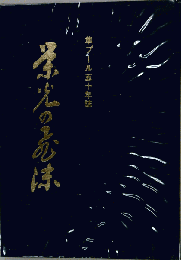 栄光の飛沫
華プール五十年誌